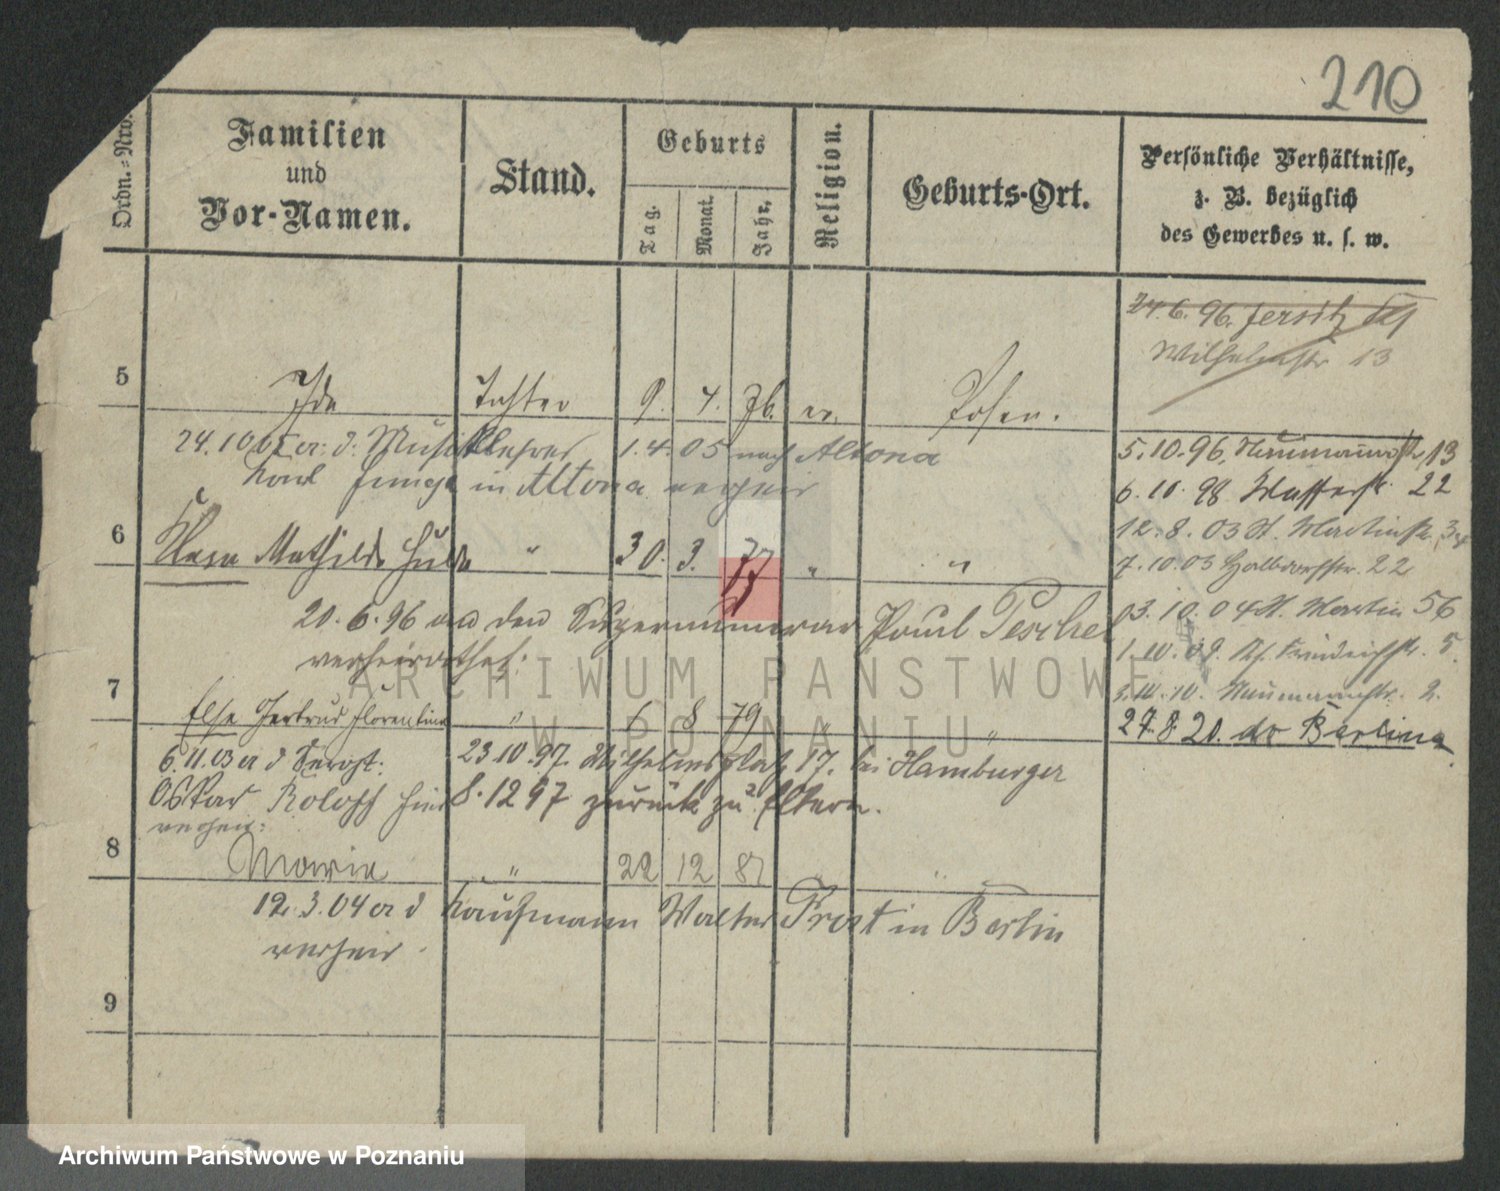 210
Ordn.=Nro.
Familien
und
Vor-Namen.
Stand.
Geburts
Tag.
Monat.
Jahr.
Religion.
Geburts-Ort.
Persönliche Verhältnisse,
z. B. bezüglich
des Gewerbes u. s. w.
24.6.96. Jersitz
Wilhelmstr 13
5 Ida Tochter 9. 4. 76. ev. Posen.
24.10.05 er: d: Musiklehrer 1.4.05 nach Altona
Karl in Altona verheir
5.10.96, Naumannstr 13
6.10.98 Wasserstr. 22
12.8.03 St. Martinstr.
7.10.03 Halbdorfstr. 22
6 Clara Mathilde Hulda " 30. 3. 77 " "
20.6.96 an den Supernumerar Paul Peschel
verheirathet.
03.10.04 St. Martin 56
1.10.09. 5.
3.10.10. Naumannstr. 2.
27.8.20. do Berlin
7 Else Gertrud Florentine " 6 8 79 " "
6.11.03 er d Sergt: 23.10.97. Wilhelmsplatz 17. bei Hamburger
Oskar Roloff hier 8.12 97 zurück zu Eltern.
verheir:
8 Maria " 22 12 81 " "
12.3.04 er d Kaufmann Walter Frost in Berlin
verheir.
9
ARCHIWUM PAŃSTWOWE
W POZNANIU
Archiwum Państwowe w Poznaniu